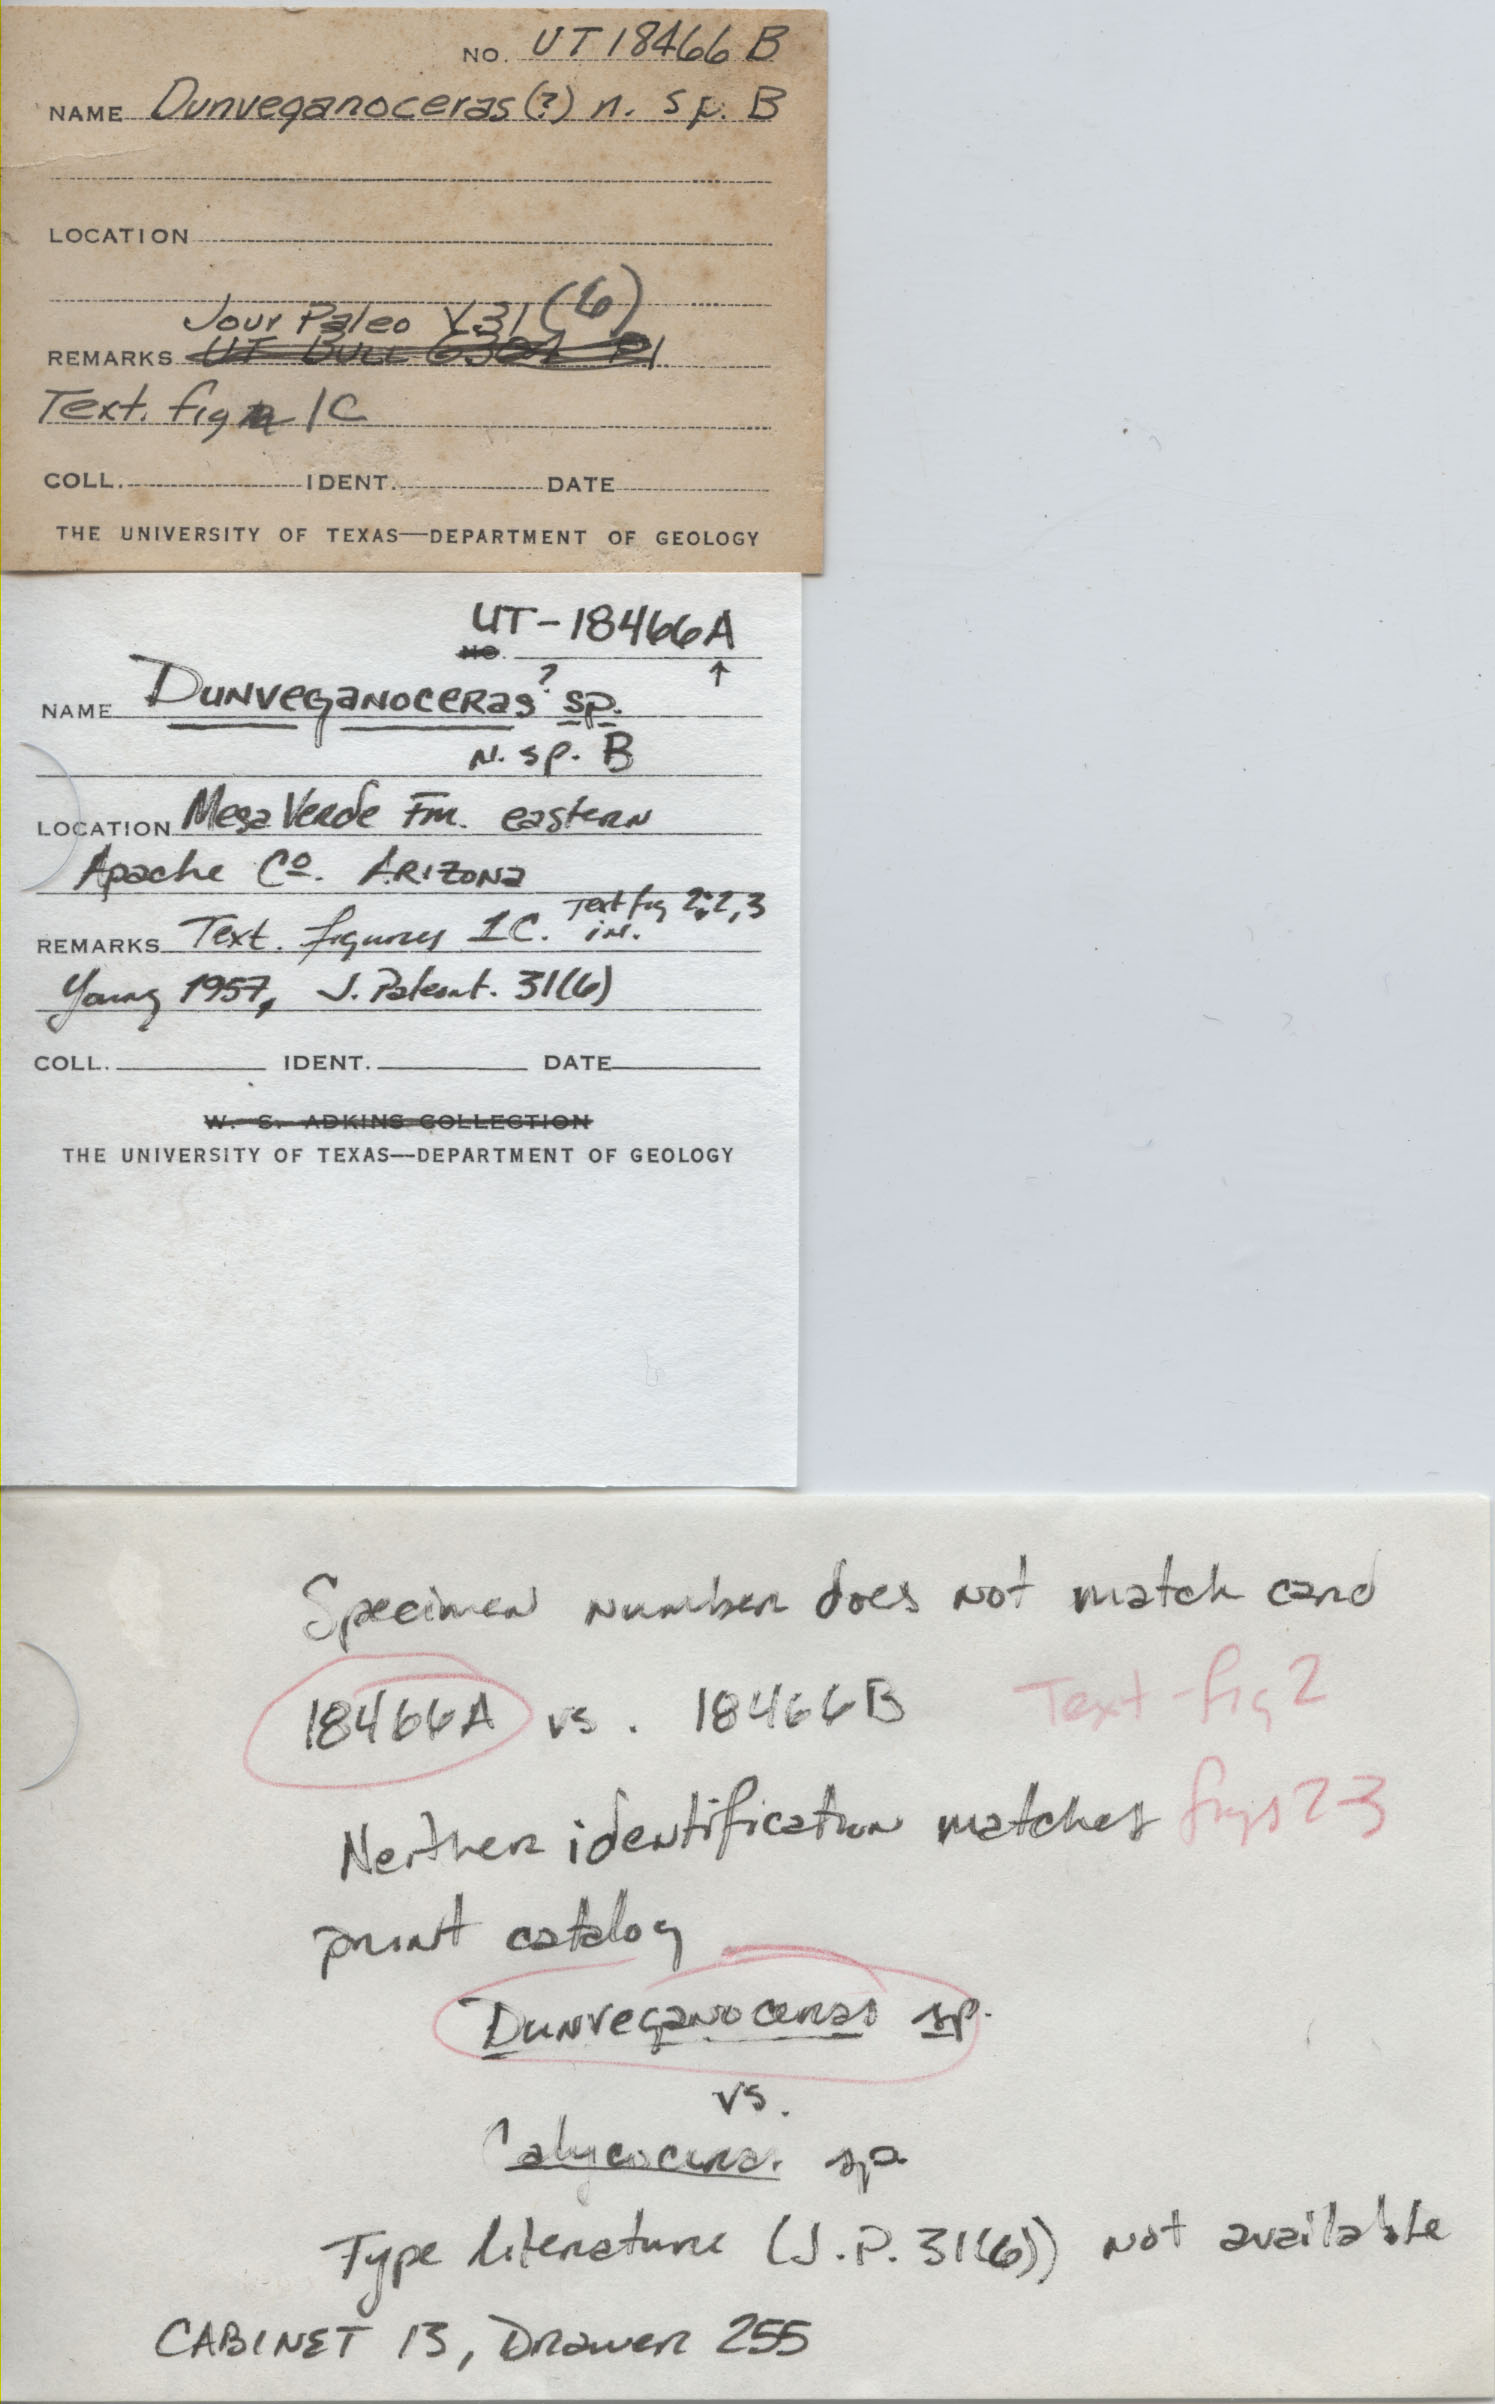 NO. UT 18466 B
NAME Dunveganoceras (?) n. sp. B
LOCATION
Jour Paleo V.31 (6)
REMARKS UT BULL 6304 Pl
Text. fig 1C
COLL. IDENT. DATE
THE UNIVERSITY OF TEXAS—DEPARTMENT OF GEOLOGY
UT-18466A
NO. ↑
NAME Dunveganoceras? sp.
N. sp. B
LOCATION Mesa Verde Fm. eastern
Apache Co. ARIZONA
Text fig 2:2,3
REMARKS Text. figures 1C. in.
Young 1957, J. Paleont. 31(6)
COLL. IDENT. DATE
W. S. ADKINS COLLECTION
THE UNIVERSITY OF TEXAS—DEPARTMENT OF GEOLOGY
Specimen number does not match card
18466A vs. 18466B Text-fig 2
Neither identification matches figs 2-3
print catalog
Dunveganoceras sp.
vs.
Calycoceras sp
Type literature (J.P. 31(6)) not available
CABINET 13, Drawer 255